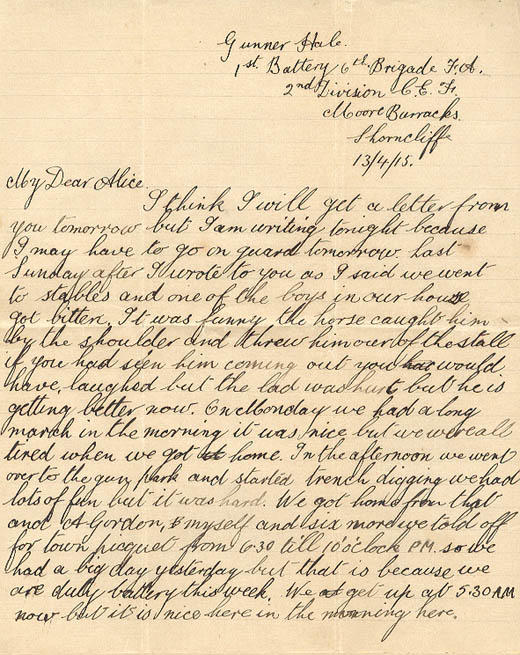 Gunner Hale.
1st Battery 6th Brigade F.A.
2nd Division C.E.F.
Moore Burracks.
Shorncliffe
13/4/15.
My Dear Alice.
I think I will get a letter from
you tomorrow but I am writing tonight because
I may have to go on guard tomorrow. last
Sunday after I wrote to you as I said we went
to stables and one of the boys in our house
got bitten. It was funny the horse caught him
by the shoulder and threw him over the stall
if you had seen him coming out you would
have, laughed but the lad was hurt, but he is
getting better now. On Monday we had a long
march in the morning it was nice but we were all
tired when we got home. In the afternoon we went
over to the gun park and started trench digging we had
lots of fun but it was hard. We got home from that
and A Gordon, & myself and six more we told off
for town picquet from 6.30 till 10 o'clock P.M. so we
had a big day yesterday but that is because we
are duty battery this week. We get up at 5.30 AM
now but it is nice here in the morning here.